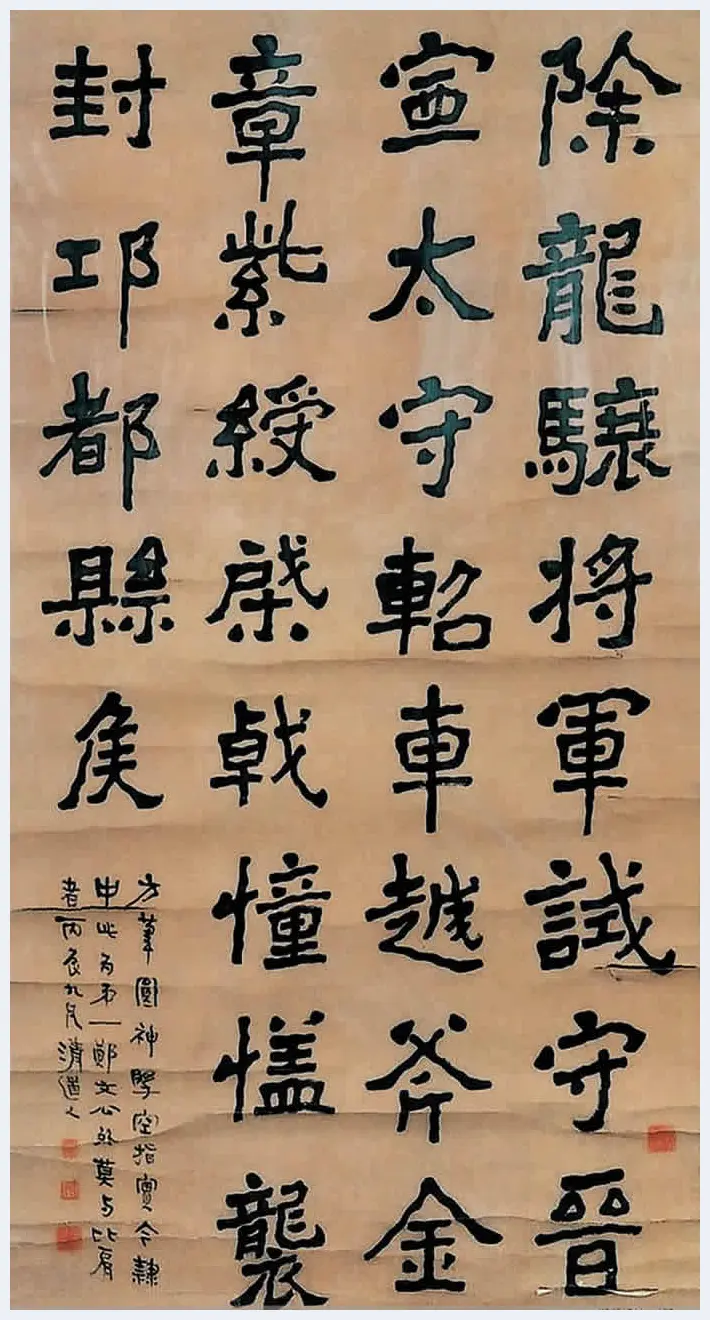 除龍驤将軍試守晉
寍太守軺車越斧金
章紫綬棨戟憧蓋襲
封邛都縣侯
方筆圓神掌空指實今隸
中此為弟一鄭文公終莫与比肩
者丙辰九月清道人